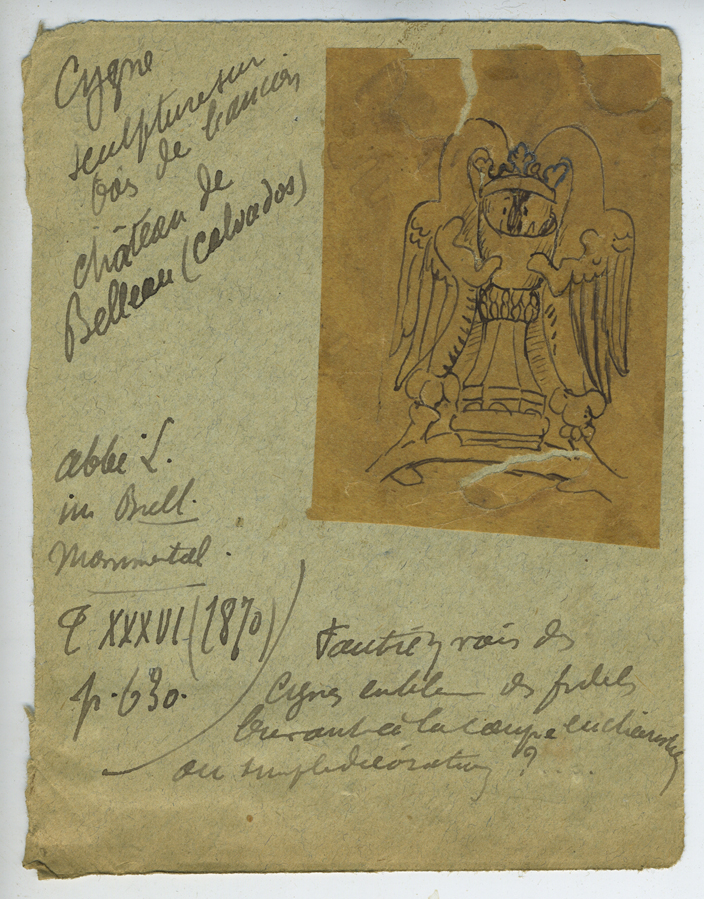 Cygne
sculpture sur
bois de l'ancien
château de
Belleau (Calvados)
abbé L.
in Bull.
Monumental.
T XXXVI (1870)
p. 630.
Faut-il y voir des
Cygnes emblèm des fidels
buvant à la coupe eucharistiq
ou simple décoration ? ....